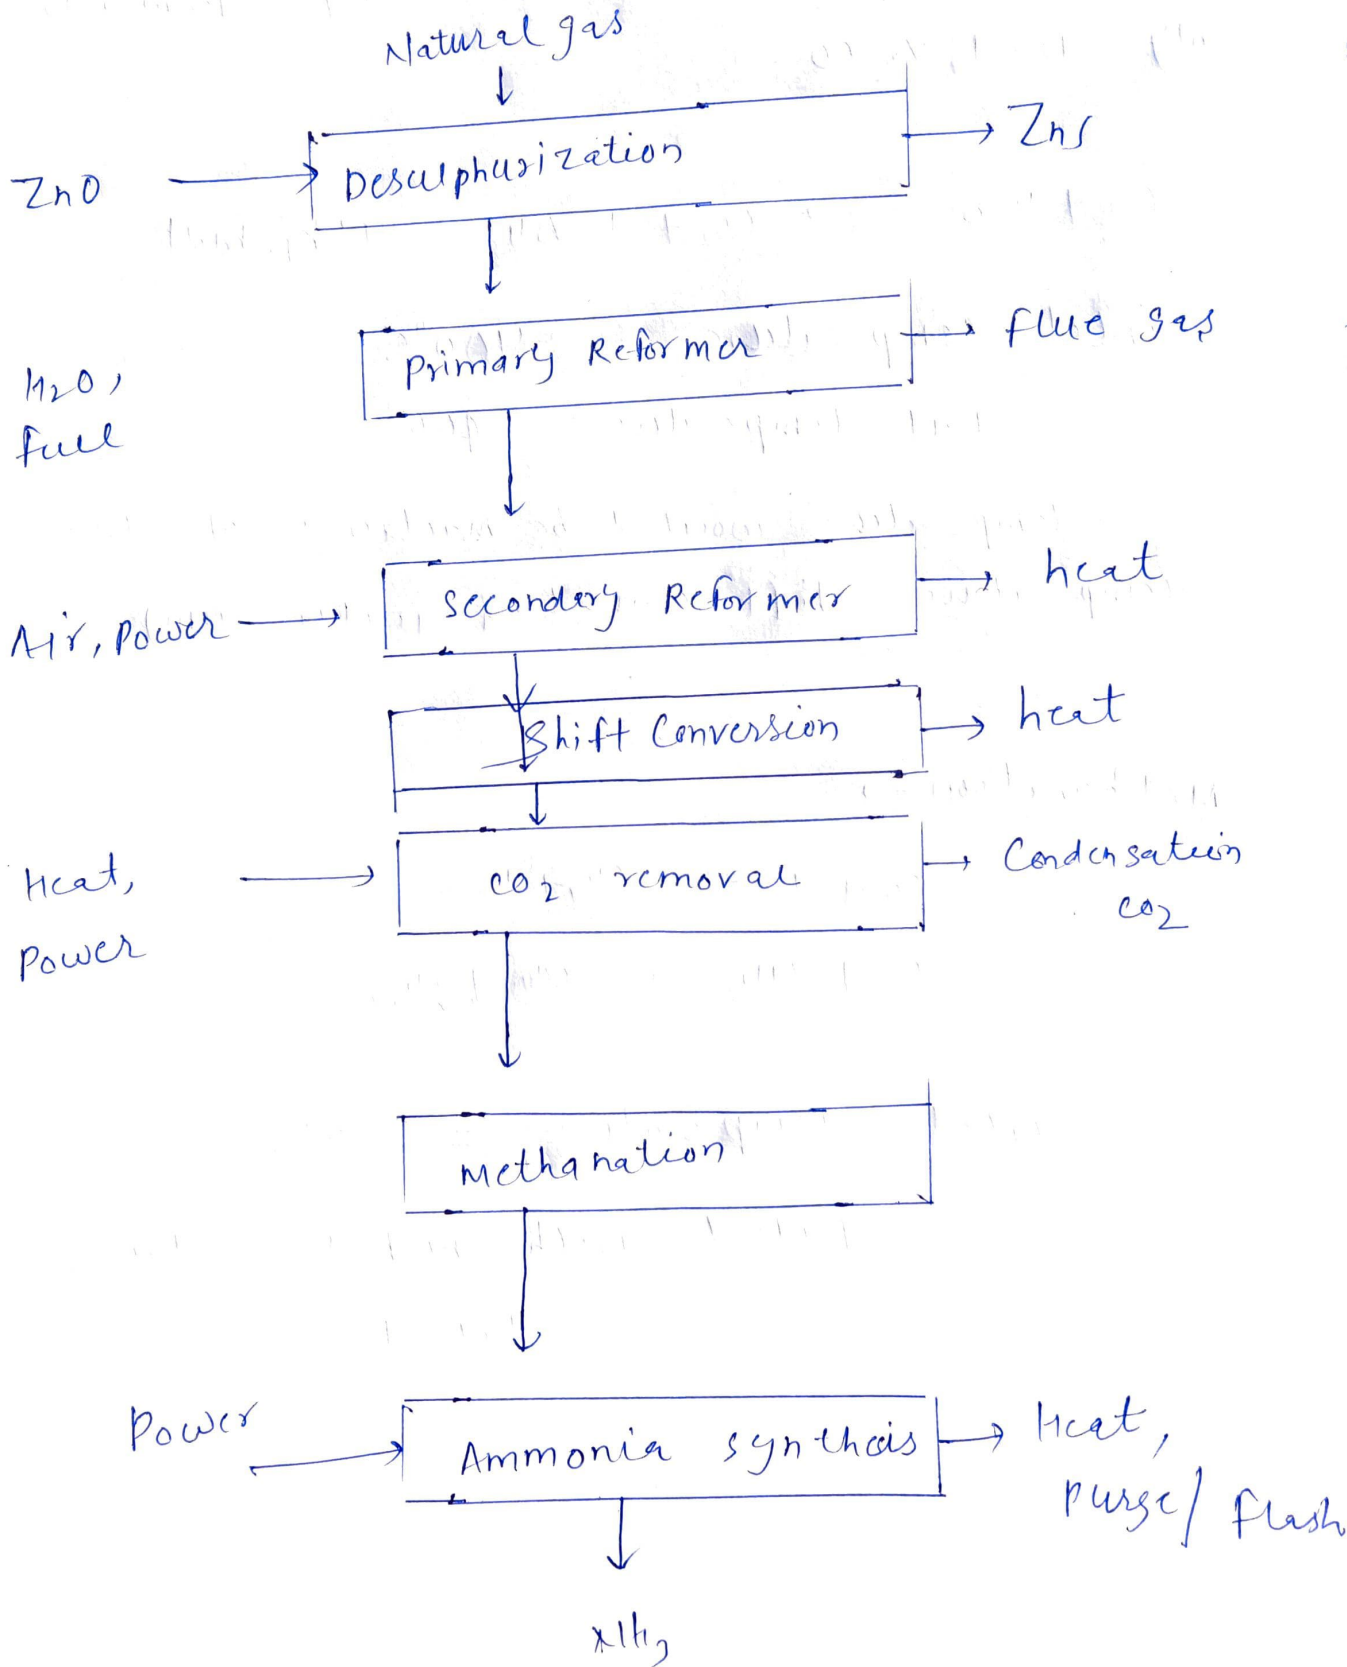 Natural gas
ZnO
Desulphurization
ZnS
H2O,
fuel
Primary Reformer
flue gas
Air, Power
Secondary Reformer
heat
Shift Conversion
heat
Heat,
Power
CO2 removal
Condensation
CO2
Methanation
Power
Ammonia synthesis
Heat,
Purge/ flash
NH3